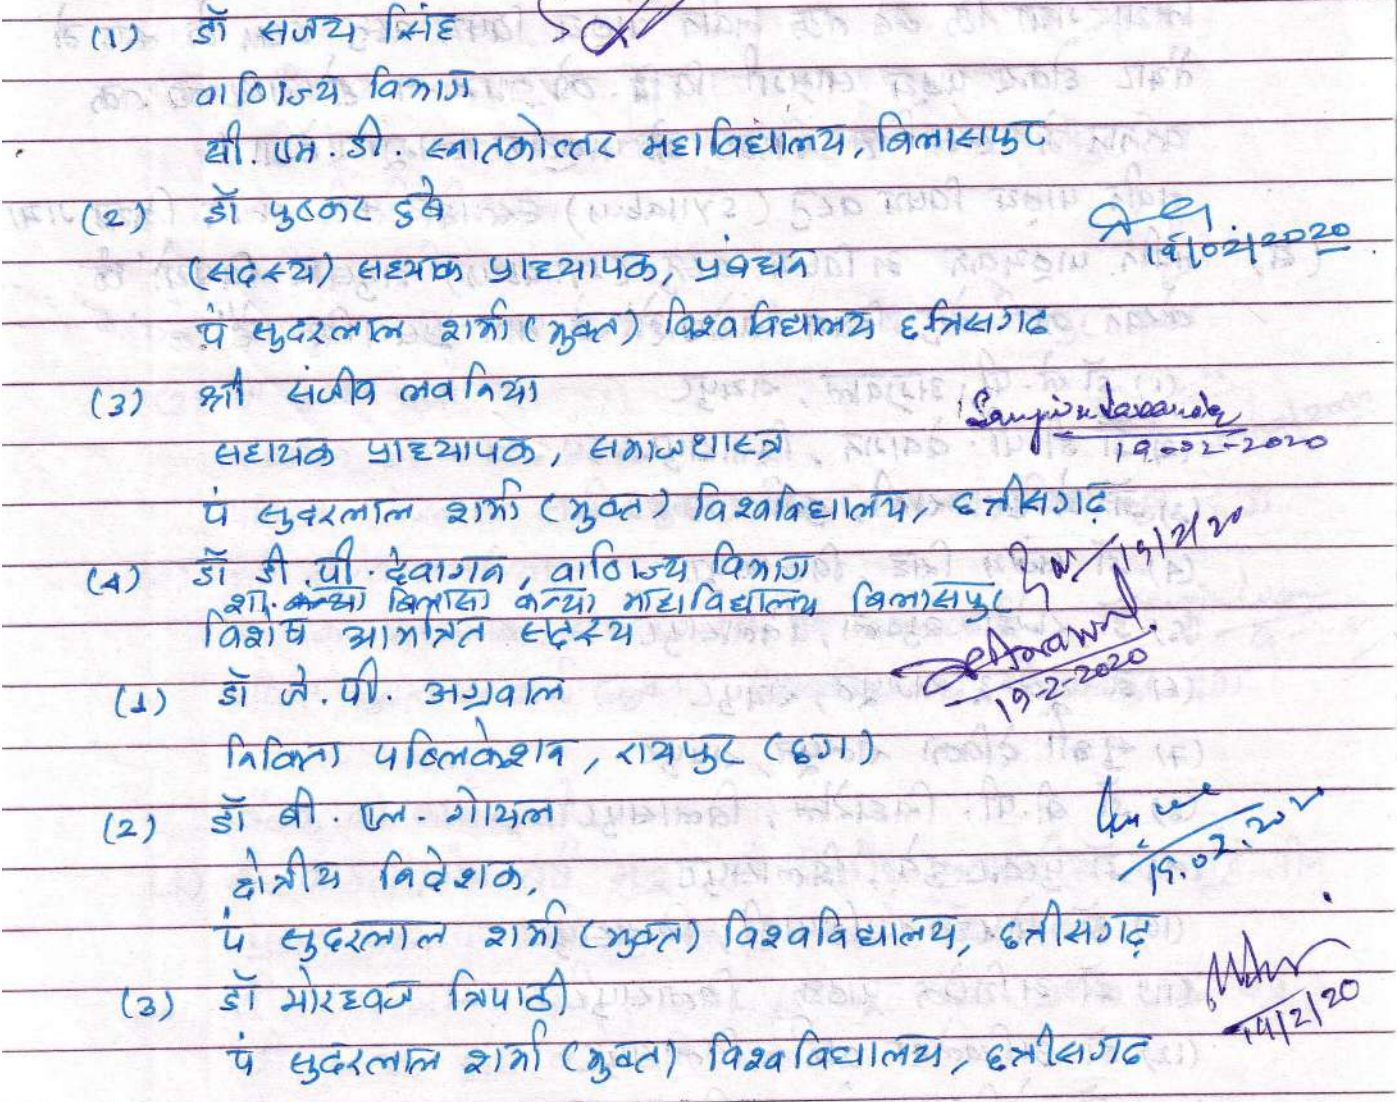 (1) डॉ संजय सिंह
वाणिज्य विभाग
सी. एम. डी. स्नातकोत्तर महाविद्यालय, बिलासपुर
(2) डॉ पुष्कर दुबे
19/02/2020
(सदस्य) सहायक प्राध्यापक, प्रबंधन
पं सुदरलाल शर्मा (मुक्त) विश्वविद्यालय छत्तिसगढ
(3) श्री संजीव लवनिया
19-02-2020
सहायक प्राध्यापक, समाजशास्त्र
पं सुदरलाल शर्मा (मुक्त) विश्वविद्यालय, छत्तीसगढ़
(4) डॉ डी. पी. देवागन, वाणिज्य विभाग
19/2/20
शा. बिलासा कन्या माहाविद्यालय बिलासपुर
विशेष आमंत्रित सदस्य
19-2-2020
(1) डॉ जे. पी. अग्रवाल
निकिता पब्लिकेशन, रायपुर (छग)
(2) डॉ बी. एल. गोयल
क्षेत्रीय निदेशक,
पं सुदरलाल शर्मा (मुक्त) विश्वविद्यालय, छत्तीसगढ़
(3) डॉ मोरध्वज त्रिपाठी
पं सुदरलाल शर्मा (मुक्त) विश्वविद्यालय, छत्तीसगढ